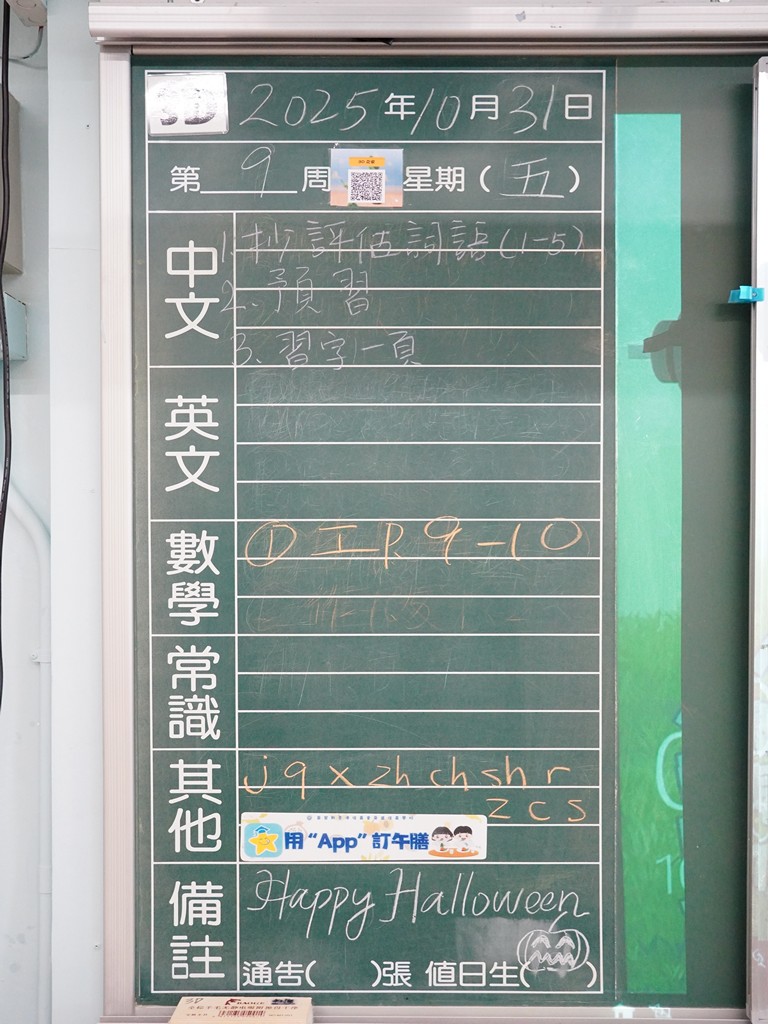 3D 2025年10月31日
第 9 周 星期(五)
中文
1. 抄評估詞語(1-5)
2. 預習
3. 習字一頁
英文
數學
① 工 P. 9-10
常識
其他
j q x zh ch sh r
z c s
用“App”訂午膳
備註
Happy Halloween
通告( )張 值日生( )
3D